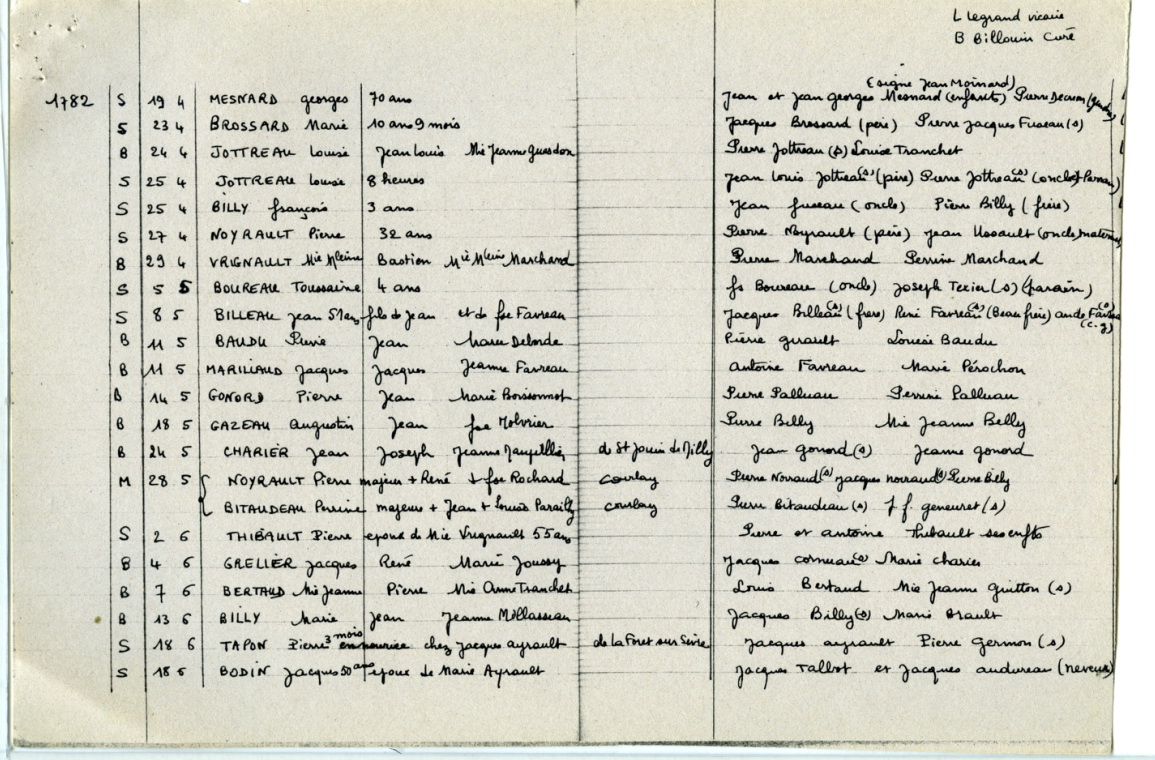 L Legrand vicaire
B Billouin Curé
(signe Jean Moinard)
1782 S 19 4 MESNARD georges 70 ans Jean et Jean georges Mesnard (enfants) Pierre
S 23 4 BROSSARD Marie 10 ans 9 mois Jacques Brossard (père) Pierre Jacques Fuseau (s)
B 24 4 JOTTREAU Louise Jean Louis Mie Jeanne Guesdon Pierre Jottreau (s) Louise Tranchet
S 25 4 JOTTREAU Louise 8 heures Jean Louis Jottreau (s) (père) Pierre Jottreau (s) (oncle + Parrain)
S 25 4 BILLY françois 3 ans Jean fuseau (oncle) Pierre Billy (frère)
S 27 4 NOYRAULT Pierre 32 ans Pierre Noyrault (père) Jean Ussault (oncle maternel
B 29 4 VRIGNAULT Mie Mleine Bastien Mie Mleine Marchand Pierre Marchand Perrine Marchand
S 5 5 BOUREAU Toussaine 4 ans fs Boureau (oncle) Joseph Texier (s) (parain)
S 8 5 BILLEAU Jean 51 ans fils de Jean et de foe Favreau Jacques Billeau (s) (frere) René Favreau (s) (Beau frère) andé Favreau (s) (c.g)
B 11 5 BAUDU Jean Marie Delorde Pierre girault Louise Baudu
B 11 5 MARILLAUD Jacques Jacques Jeanne Favreau antoine Favreau Marie Pérochon
B 14 5 GONORD Pierre Jean Marie Boissonnot Pierre Palluau Perrine Palluau
B 18 5 GAZEAU Augustin Jean foe Pierre Billy Mie Jeanne Billy
B 24 5 CHARIER Jean Joseph Jeanne de St Jouin de Milly Jean gonord (s) Jeanne gonord
M 28 5 NOYRAULT Pierre majeur + René + foe Rochard courlay Pierre Noiraud (s) Jacques noiraud (s) Pierre Billy
BITAUDEAU Perrine majeure + Jean + Louise courlay Pierre Bitaudeau (s) J f. geneuret (s)
S 2 6 THIBAULT Pierre epoux de Mie Vrignault 55 ans Pierre et antoine Thibault ses enfts
B 4 6 GRELIER Jacques René Marie Joussy Jacques cornuau (s) Marie charier
B 7 6 BERTAUD Mie Jeanne Pierre Mie Anne Tranchet Louis Bertaud Mie Jeanne guitton (s)
B 13 6 BILLY Marie Jean Jeanne Millasseau Jacques Billy (s) Marie Brault
S 18 6 TAPON Pierre 3 mois en nourrice chez Jacques ayrault de la Foret sur Sèvre Jacques ayrault Pierre germon (s)
S 18 6 BODIN Jacques 50 ans epoux de Marie Ayrault Jacques Talbot et Jacques audureau (neveux)